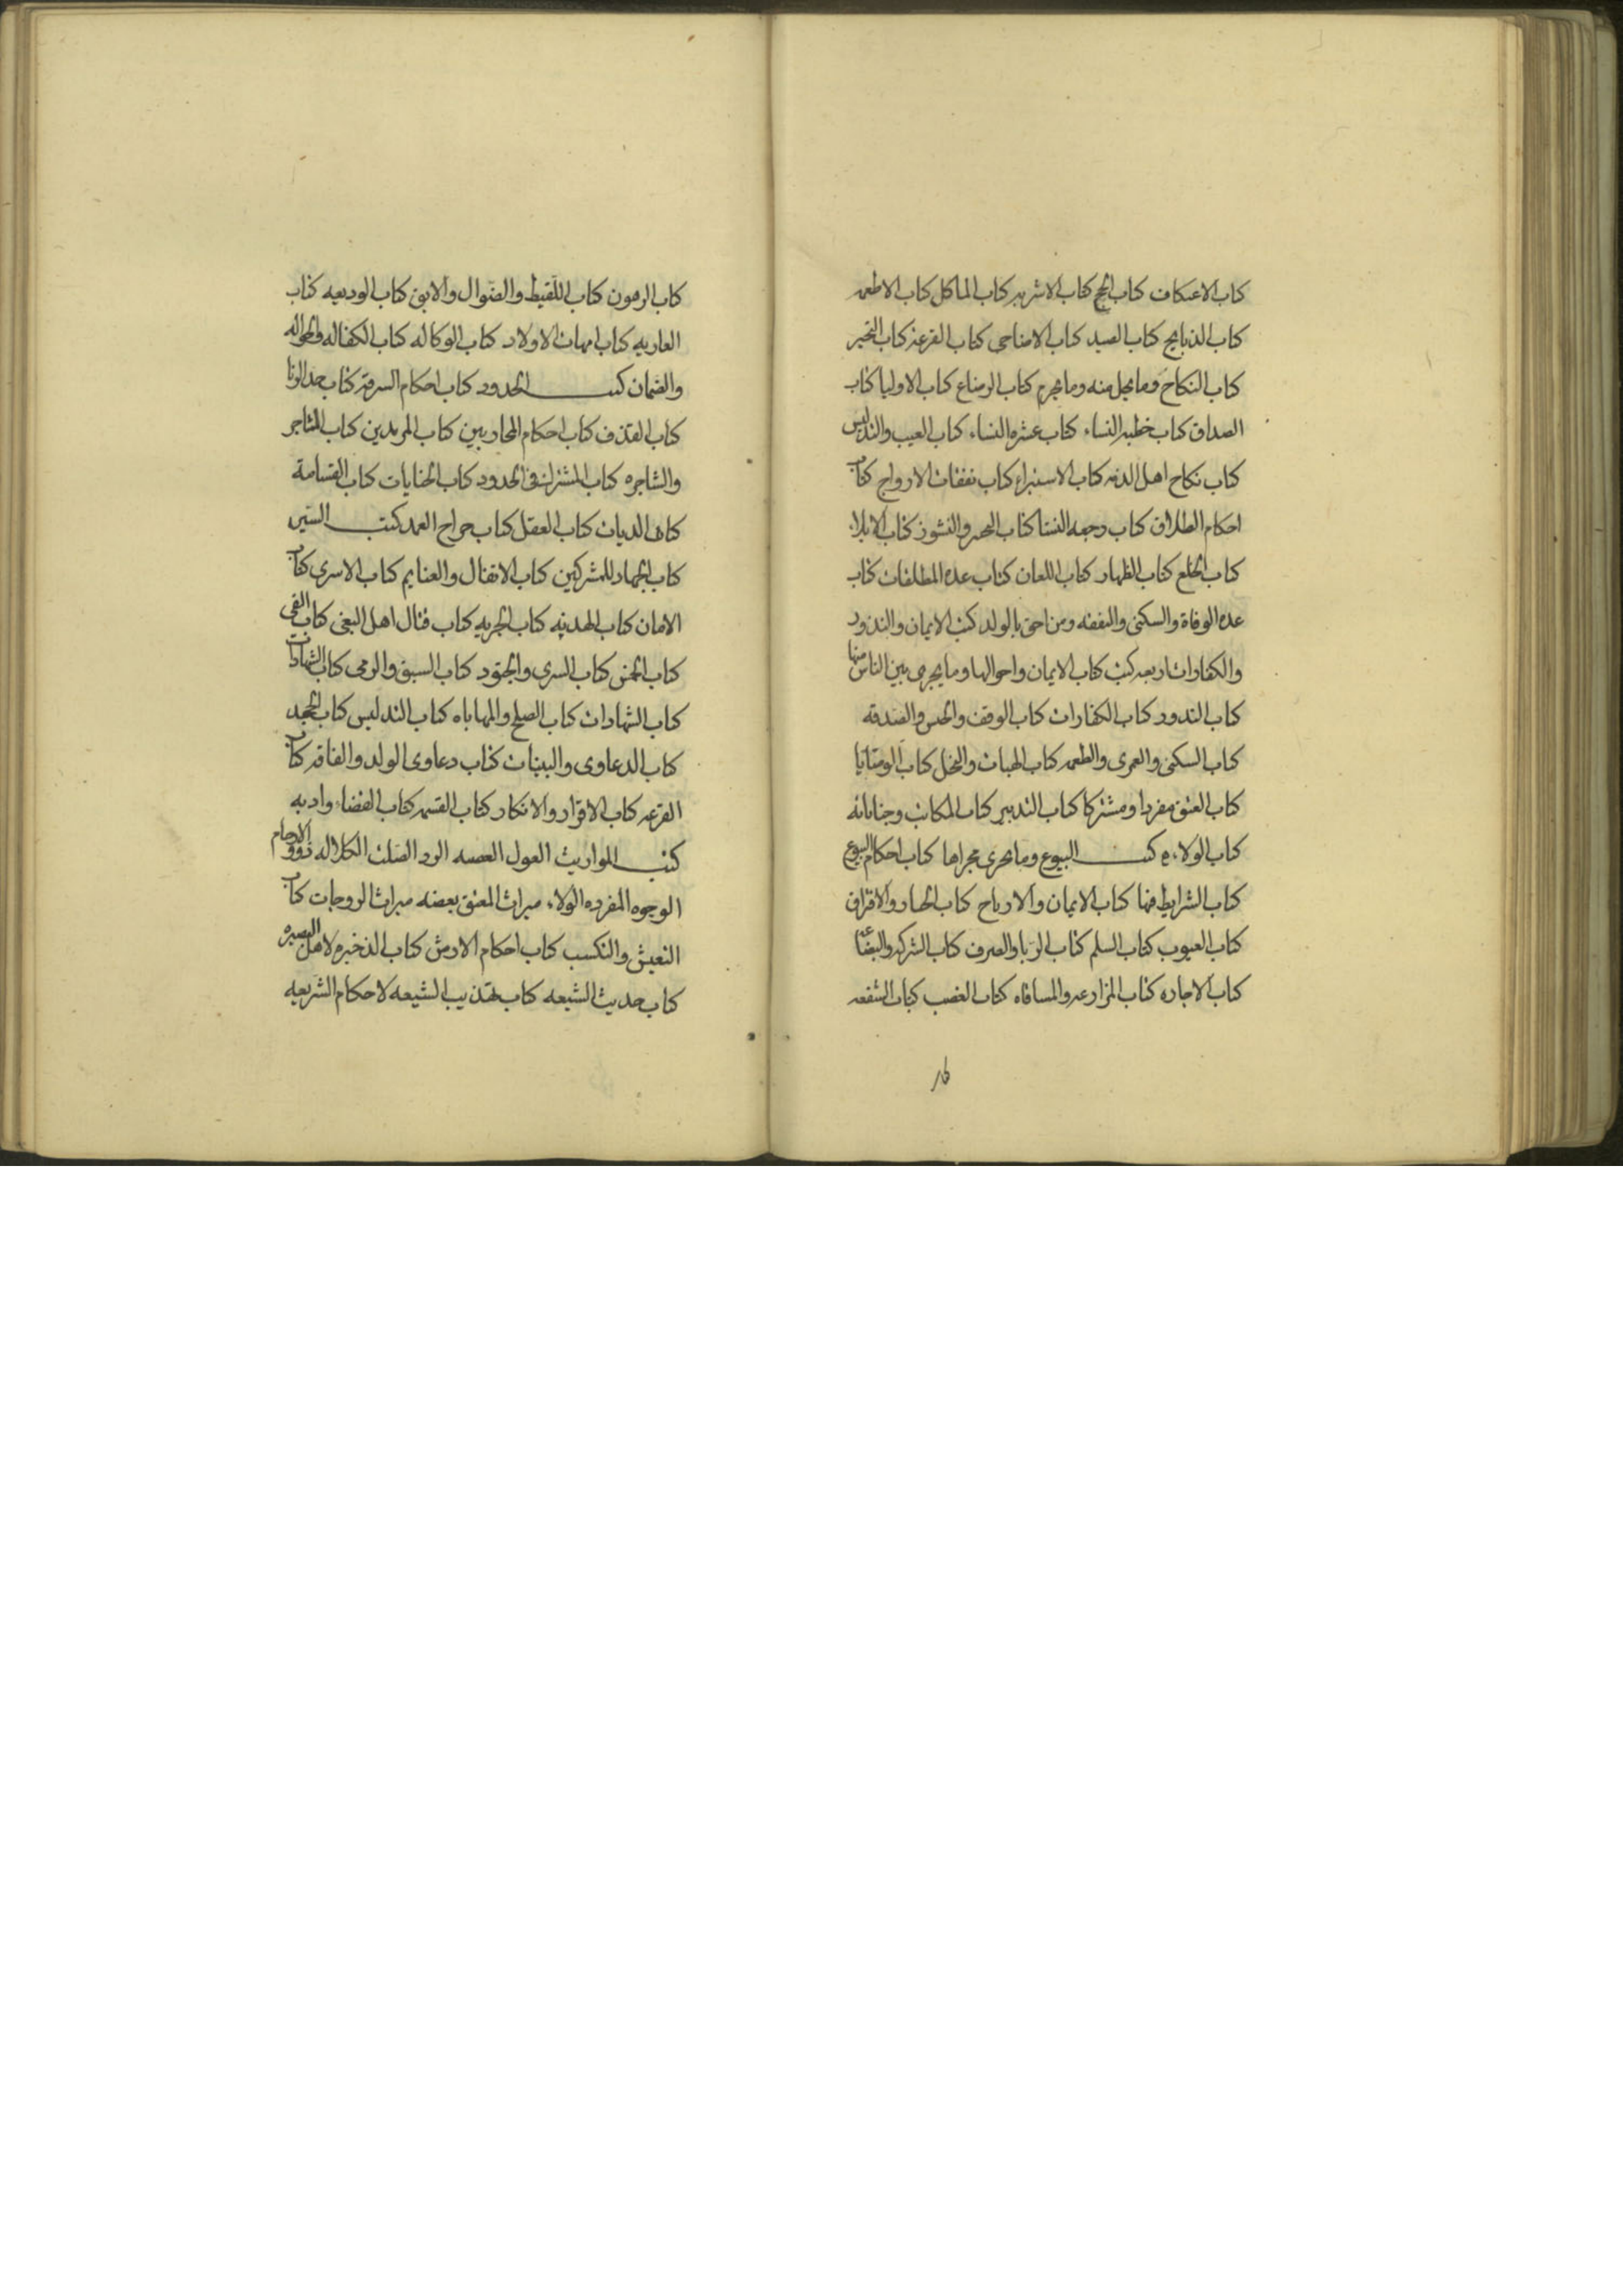 كتاب الاعتكاف كتاب الحج كتاب الاشربه كتاب الماكل كتاب الاطعمه
كتاب الذبايح كتاب الصيد كتاب الاضاحى كتاب القرعة كتاب التخير
كتاب النكاح وما يحل منه وما يحرم كتاب الرضاع كتاب الاوليا كتاب
الصداق كتاب خطبه النساء كتاب عشره النساء كتاب العيب والتدليس
كتاب نكاح اهل الذمه كتاب الاستبراء كتاب نفقات الازواج كتاب
احكام الطلاق كتاب رجعه النسا كتاب الهجر والنشوز كتاب الايلاء
كتاب الخلع كتاب الظهار كتاب اللعان كتاب عده المطلقات كتاب
عده الوفاة والسكنى والنفقه ومن احق بالولد كتب الايمان والندور
والكفارات اربعه كتب كتاب الايمان واحوالها وما يجرى بين الناس منها
كتاب الندور كتاب الكفارات كتاب الوقف والحبس والصدقه
كتاب السكنى والعمرى والطعمه كتاب الهبات والنحل كتاب الوصايا
كتاب العتق مفردا ومشتركا كتاب التدبير كتاب المكاتب وجناياته
كتاب الولاء كتب البيوع وما يجرى مجراها كتاب احكام البيوع
كتاب الشرايط فيها كتاب الايمان والارباح كتاب الخيار والافتراق
كتاب العيوب كتاب السلم كتاب الربا والصرف كتاب الشركه
كتاب الاجاره كتاب المزارعه والمساقاه كتاب الغصب كتاب الشفعه
كتاب الرهون كتاب اللقيط والضوال والابق كتاب الوديعه كتاب
العاريه كتاب امهات الاولاد كتاب الوكاله كتاب الكفاله والحواله
والضمان كتب الحدود كتاب احكام السرقه كتاب حد الزنا
كتاب القذف كتاب احكام المحاربين كتاب المرتدين كتاب
كتاب المشترك فى الحدود كتاب الجنايات كتاب القسامة
كتاب الديات كتاب العقل كتاب جراح العمد كتب السير
كتاب الجهاد للمشركين كتاب الانفال والغنايم كتاب الاسرى كتاب
الامان كتاب الهدنه كتاب الجزيه كتاب قتال اهل البغى كتاب الفى
كتاب الخمس كتاب السرى والجنود كتاب السبق والرمى كتب الشهادات
كتاب الشهادات كتاب الصلح والمهاياه كتاب التدليس كتاب الحجر
كتاب الدعاوى والبينات كتاب دعاوى الولد والقافه كتاب
القرعه كتاب الاقرار والانكار كتاب القسمه كتاب القضاء وادبه
كتب المواريث العول العصبه الرد الصلب الكلاله ذوو الارحام
الوجوه المفرده الولاء ميراث المعتق بعضه ميراث الزوجات كتاب
التعيش والتكسب كتاب احكام الارش كتاب الذخيره لاهل البصيره
كتاب حديث الشيعه كتاب تهذيب الشيعه لاحكام الشريعه